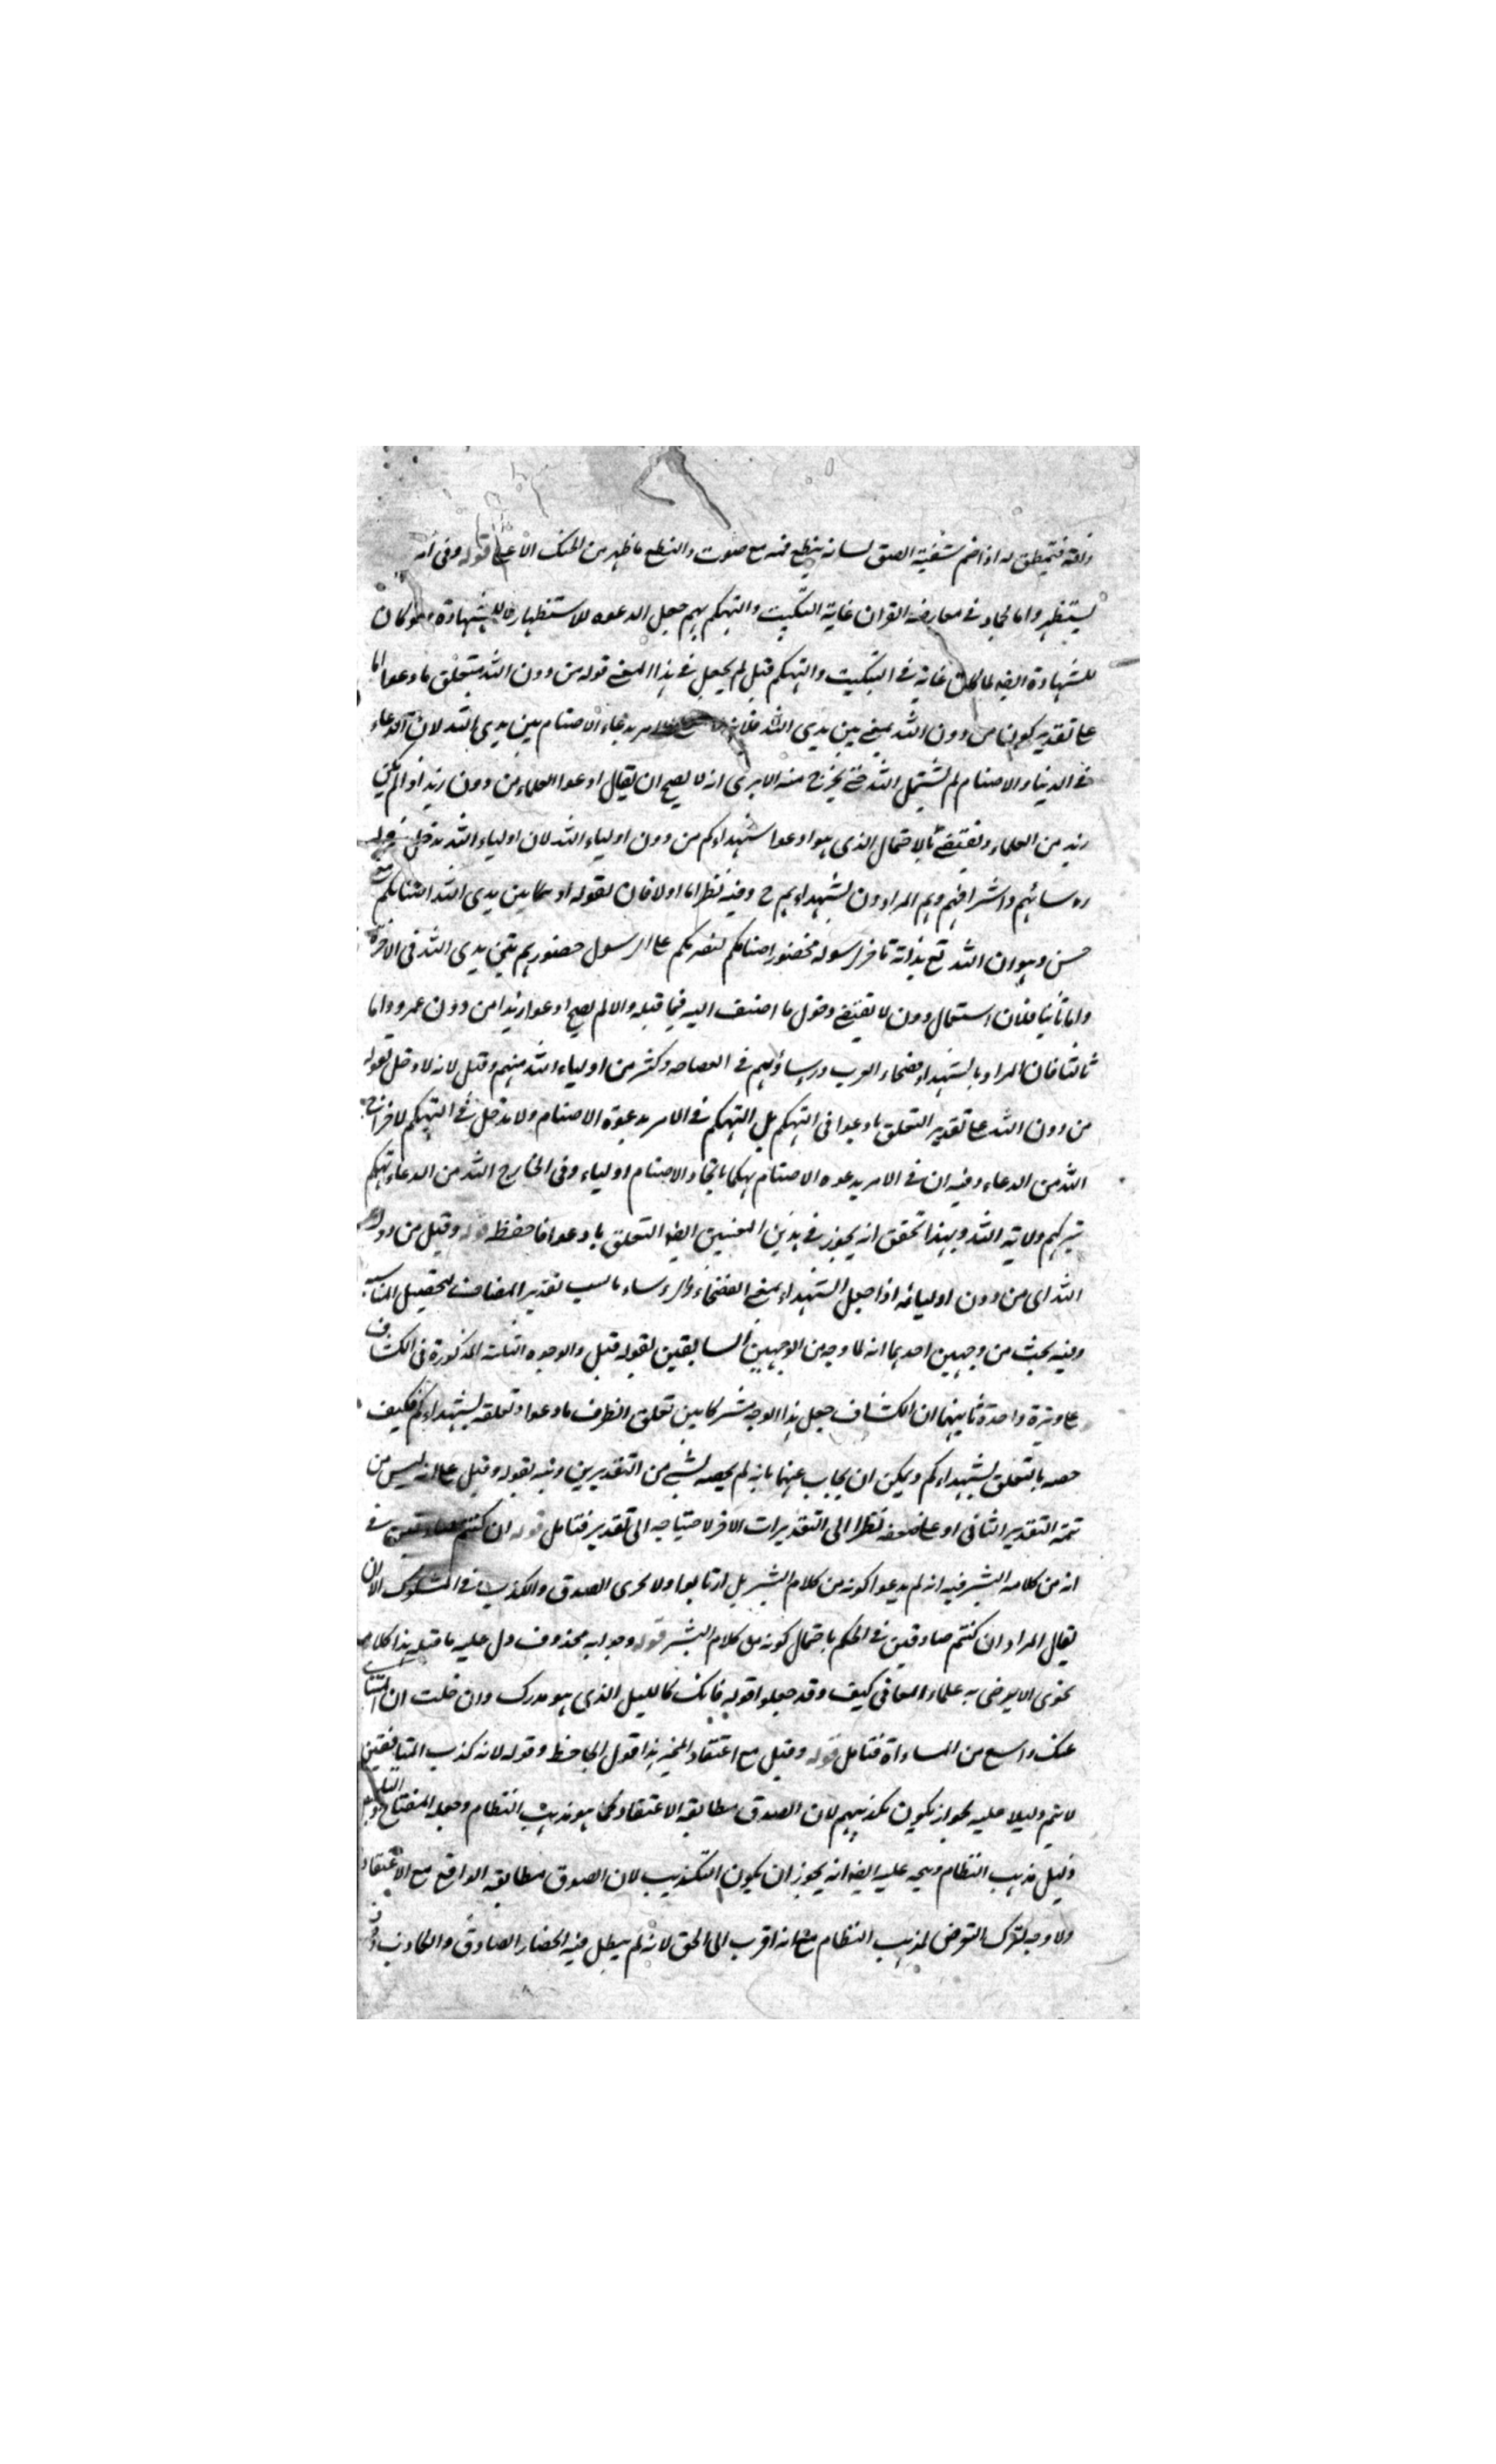 ذلقته فتمطق له اذا ضم شفتيه الصق لسانه بنطع فمه مع صوت والنطع ما ظهر من الحنك الاعلى قوله وفى امر
يستظهروا بالجماد فى معارضة القران غاية التبكيت والتهكم بهم جعل الدعوة للاستظهار لا للشهادة ولو كان
للشهادة ايضا لما كان غاية فى التبكيت والتهكم قيل لم يجعل فى هذا المعنى قوله من دون الله متعلق بادعوا اما
على تقدير كون من دون الله بمعنى بين يدى الله فلانه الامر بدعاء الاصنام بين يدى الله لان الدعاء
فى الدنيا والاصنام لم تشتمل الله حتى يخرج منه الا يرى انه لا يصح ان يقال ادعوا العلماء من دون زيد اذا لم يكن
زيد من العلماء بالاحتمال الذى هو ادعوا شهداءكم من دون اولياء الله لان اولياء الله يدخل فى
رؤسائهم واشرافهم وهم المراد من شهدائهم ح وفيه نظر اما اولا فان لقوله ادعوا بين يدى الله اصنامكم
حسن وهو ان الله تع بذاته ناصر لرسوله بحضور اصنامكم لنصرتكم على الرسول حضورهم بين يدى الله فى الاخرة
واما ثانيا فلان استعمال دون لا تقتضى دخول ما اضيف اليه فيما قبله والا لم يصح ادعوا زيدا من دون عمرو واما
ثالثا فان المراد بالشهداء فصحاء العرب ورؤساؤهم فى الفصاحة وكثير من اولياء الله منهم وقيل لانه لا دخل لقوله
من دون الله على تقدير التعلق بادعوا فى التهكم بل التهكم فى الامر بدعوة الاصنام ولا مدخل فى التهكم لاخراج
الله من الدعاء وفيه ان فى الامر بدعوة الاصنام تهكما باتخاذ الاصنام اولياء وفى اخراج الله من الدعاء تهكم
بتركهم ولاية الله وبهذا تحقق انه يجوز فى هذين المعنيين ايضا التعلق بادعوا فاحفظ قوله وقيل من دون
الله اى من دون اوليائه اذا جعل الشهداء بمعنى الفصحاء والرؤساء ناسب تقدير المضاف لتحصيل المناسبة
وفيه بحث من وجهين احدهما انه لما وجه من الوجهين السابقين لقوله قيل والوجوه الثلثة المذكورة فى الكشاف
على وتيرة واحدة ثانيهما ان الكشاف جعل هذا الوجه مشتركا بين تعلق الظرف بادعوا وتعلقه بشهداءكم فكيف
خصه بالتعلق بشهداءكم ويمكن ان يجاب عنهما بانه لم يخصه بشئ من التقديرين ونبه بقوله وقيل على انه ليس من
تتمة التقدير الثانى او على ضعفه نظرا الى التقديرات الاخر لاحتياجه الى تقدير فتامل قوله ان كنتم صادقين فى
انه من كلام البشر فيه انه لم يدعوا كونه من كلام البشر بل ارتابوا ولا يجرى الصدق والكذب فى المشكوك الا ان
يقال المراد ان كنتم صادقين فى الحكم باحتمال كونه من كلام البشر قوله وجوابه محذوف دل عليه ما قبله هذا كلام
نحوى لا يرضى به علماء المعانى كيف وقد جعلوا قوله فانك كالليل الذى هو مدركى وان خلت ان المنتاى
عنك واسع من المساواة فتامل قوله وقيل مع اعتقاد المخبر هذا قول الجاحظ وقوله لانه كذب المنافقين
لا يتم دليلا عليه لجواز يكون تكذيبهم لان الصدق مطابقة الاعتقاد كما هو مذهب النظام وجعله المفتاح
دليل مذهب النظام ويتجه عليه ايضا انه يجوز ان يكون التكذيب لان الصدق مطابقة الواقع مع الاعتقاد
ولا وجه لترك التعرض لمذهب النظام مع انه اقرب الى الحق لانه لم يبطل فيه انحصار الصادق والكاذب